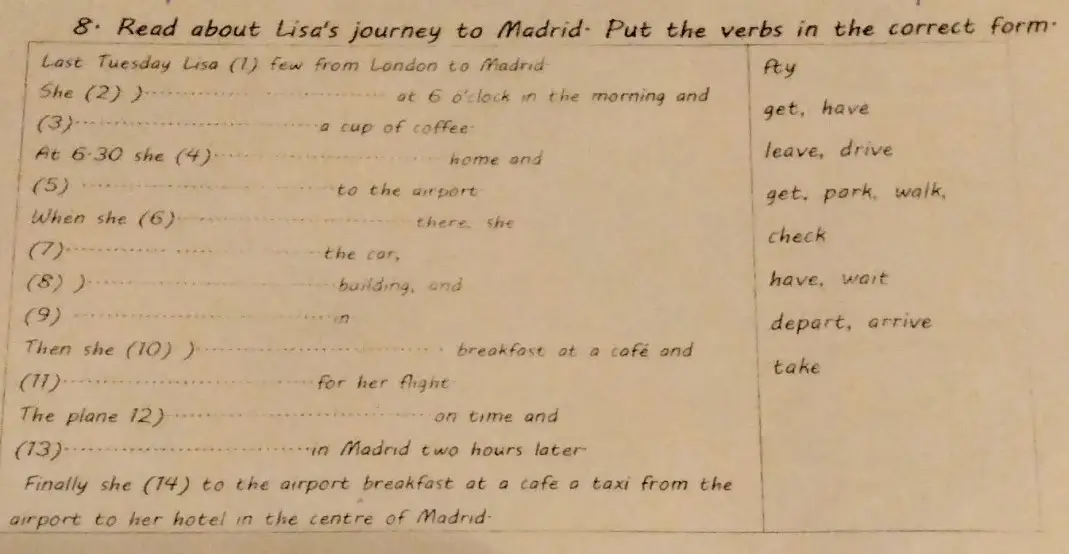 8. Read about Lisa's journey to Madrid. Put the verbs in the correct form.
Last Tuesday Lisa (1) few from London to Madrid
She (2) )........................... at 6 o'clock in the morning and
(3)........................... a cup of coffee.
At 6.30 she (4)........................... home and
(5) ........................... to the airport
When she (6)........................... there, she
(7)........................... the car,
(8) )........................... building, and
(9) ........................... in
Then she (10) )........................... breakfast at a café and
(11)........................... for her flight
The plane 12)........................... on time and
(13)...........................in Madrid two hours later
Finally she (14) to the airport breakfast at a cafe a taxi from the
airport to her hotel in the centre of Madrid.
fty
get, have
leave, drive
get, park, walk,
check
have, wait
depart, arrive
take